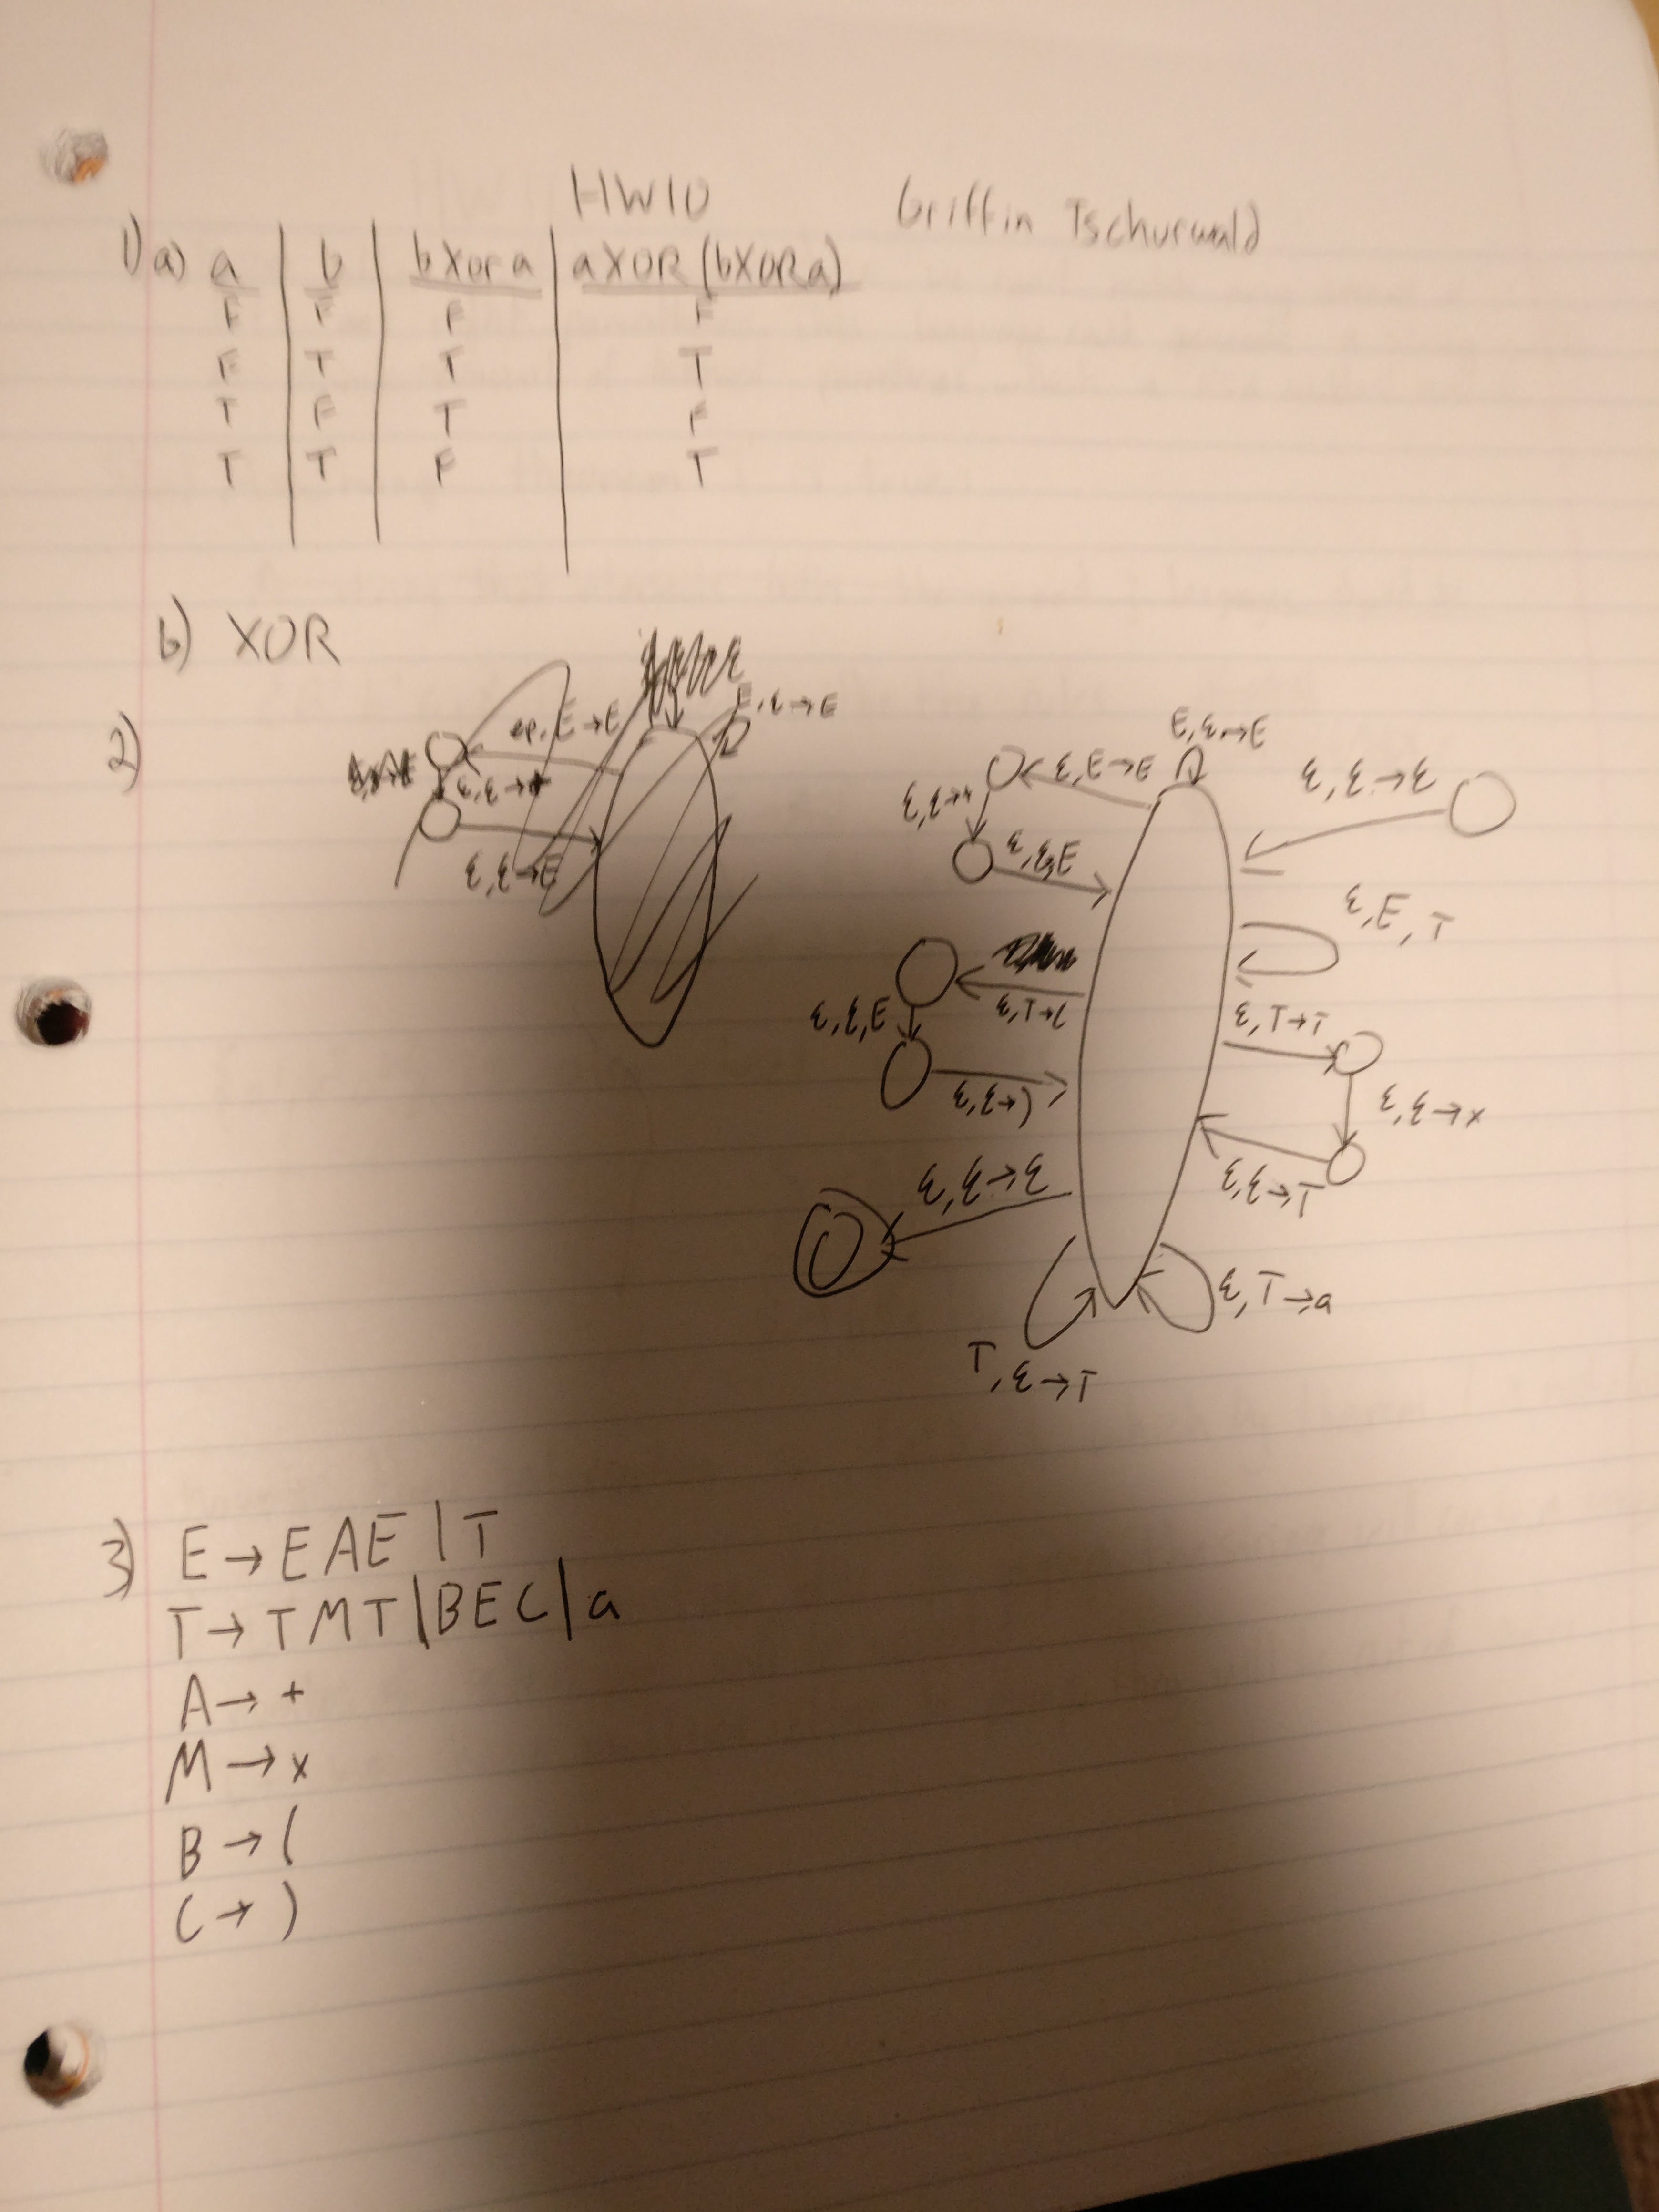 HW10 Griffin Tschurwald
1) a) a | b | b xor a | a XOR (b XOR a)
F F F F
F T T T
T F T F
T T F T
b) XOR
2)
ε, E→E
E, ε→E
ε, ε→+
ε, ε→E
E, ε→E
ε, E→E
ε, ε→ε
ε, ε→+
ε, ε→E
ε, E, T
ε, T→(
ε, T→T
ε, ε, E
ε, ε→)
ε, ε→x
ε, ε→ε
ε, ε→T
ε, T→a
T, ε→T
3) E → E A E | T
T → T M T | B E C | a
A → +
M → x
B → (
C → )